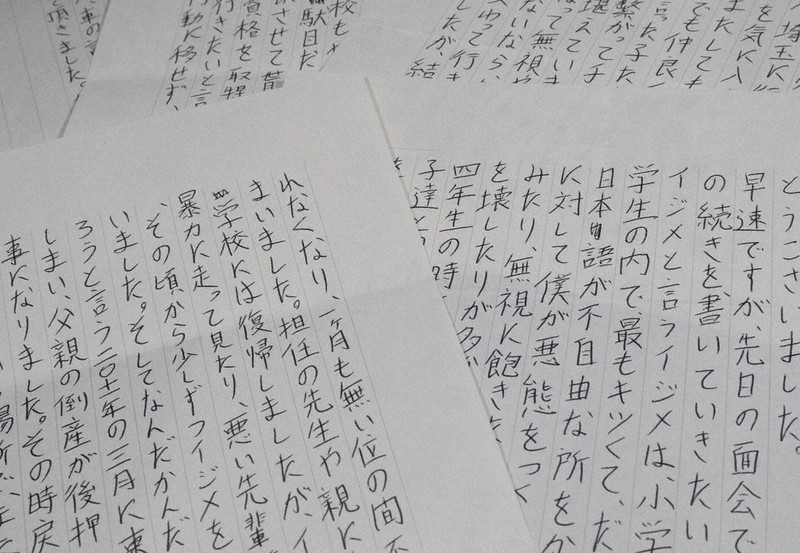 とうございました。
早速ですが、先日の面会で
の続きを、書いていきたい
イジメと言うイジメは、小学
学生の内で、最もキツくて、だ
日本語が不自由な所をか
に対して僕が悪態をつく
みたり、無視に飽きた
を壊したりが多か
四年生の時
子達と
れなくなり、一ヶ月も無い位の間不
まいました。担任の先生や親に
学校には復帰しましたが、イ
暴力に走って見たり、悪い先輩
、その頃から少しずつイジメを
いました。そしてなんだかんだ
ろうと言う二〇十一年の三月に東
しまい、父親の倒産が後押
事になりました。その時戻
場所で、
校も
駄目だ
させて昔
資格を取得
行きたいと言
行動に移せず、
頂きました。
埼玉に
を気に入
ましたしても
でも仲良
言った子た
繋がって
堪えていき
なって無視や
ないなら、い
わって行き
したが、結